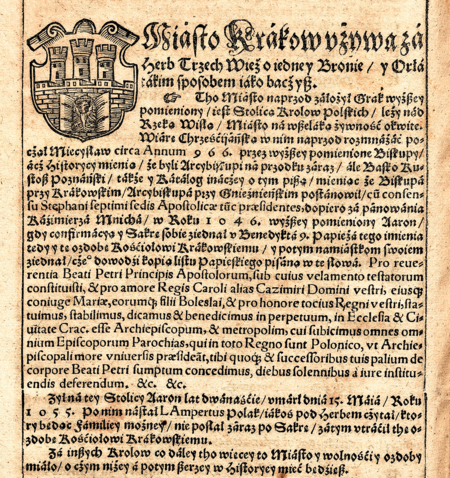 Miásto Krákow vżywa zá
Herb Trzech Wież o iedney Bronie / y Orłá
tákim sposobem iáko baczysz.
☞ Tho Miásto naprzod záłożył Grák wyższey
pomieniony / iest Stolicá Krolow Polskich / leży nád
Rzeką Wisłą / Miásto ná wszeláką żywność okwite.
Wiárę Chrześćijáńską w nim naprzod rozmnáżáć po-
czął Miecysław circa Annum 9 6 6. przez wyższey pomienione Biskupy /
ácz Historycy mienią / że byli Arcybiskupi ná przodku záraz / ále Bászko Ku-
stosz Poznáński / tákże y Kátálog ináczey o tym piszą / mieniąc że Biskupá
przy Krákowie / Arcybiskupá przy Gnieźnieńskim postánowił / cū consen-
su Stephani septimi sedis Apostolicæ tūc præsidentes, dopiero zá pánowánia
Káźimierzá Mnichá / w Roku 1 0 4 6. wyższey pomieniony Aaron /
gdy confirmácyą y Sákrę sobie ziednał v Benediktá 9. Papieżá tego imieniá
tedy y tę ozdobę Kośćiołowi Krákowskiemu / y potym namiástkom swoiem
ziednał / czeº dowodzi kopia listu Papieskiego pisána w te słowá. Pro reue-
rentia Beati Petri Principis Apostolorum, sub cuius velamento testatorum
constituisti, & pro amore Regis Caroli alias Cazimiri Domini vestri, eiusq;
coniuge Mariæ, eorumq; filii Boleslai, & pro honore tocius Regni vestri, sta-
tuimus, stabilimus, dicamus & benedicimus in perpetuum, in Ecclesia & Ci-
uitate Crac. esse Archiepiscopum, & metropolim, cui subicimus omnes om-
nium Episcoporum Parochias, qui in toto Regno sunt Polonico, vt Archie-
piscopali more vniuersis præsideāt, tibi quoq; & successoribus tuis palium de
corpore Beati Petri sumptum concedimus, diebus solennibus à iure institu-
endis deferendum. &c. &c.
Żył ná tey Stolicy Aaron lat dwánaśćie / vmárł dniá 15. Máiá / Roku
1 0 5 5. Po nim nástał LAmpertus Polak / iákoś pod Herbem czytał / kto-
ry będąc Fámiliey możney / nie posłał záraz po Sákrę / zátym vtráćił thę o-
zdobę Kośćiołowi Krákowskiemu.
Zá inszych Krolow co dáley tho więcey to Miásto y wolnośći y ozdoby
miáło / o czym niżey á potym szerzey w Historyey mieć będziesz.